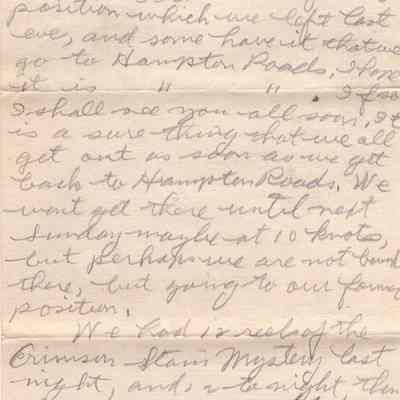 position which we left last
eve, and some have it that we
go to Hampton Roads. I hope
it is " " . If so
I shall see you all soon, It
is a sure thing that we all
get out as soon as we get
back to Hampton Roads. We
wont get there until next
Sunday maybe at 10 knots,
but perhaps we are not bound
there, but going to our former
position.
We had 12 reels of the
Crimson Stain Mystery last
night, and to-night, then